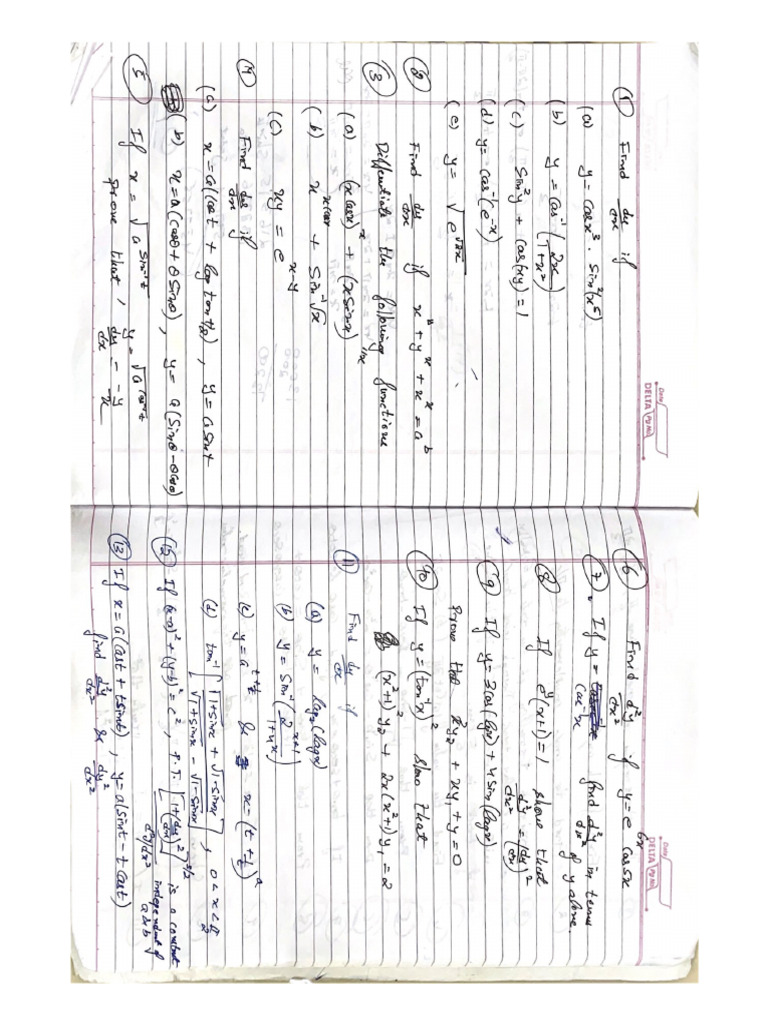 Date
DELTA Pg No
(1) Find dy/dx if
(a) y = cos x³ · sin²(x⁵)
(b) y = cos⁻¹(2x/1+x²)
(c) Sin²y + cos(xy) = 1
(d) y = cos⁻¹(e⁻ˣ)
(e) y = √e^√2x
(2) Find dy/dx if xʸ + yˣ + xˣ = aᵇ
(3) Differentiate the following functions
(a) (x cosx)ˣ + (x sinx)^1/x
(b) x^x cosx + Sin⁻¹√x
(c) xy = e^x-y
(4) Find dy/dx if
(a) x = a(cost + log tan t/2), y = a sint
(b) x = a(cosθ + θ sinθ), y = a(Sinθ - θcosθ)
(5) If x = √a^Sin⁻¹t y = √a^cos⁻¹t
prove that, dy/dx = -y/x
Date
DELTA Pg No
(6) Find d²y/dx² if y = e^6x cos5x
(7) If y = cos⁻¹x find d²y/dx² in terms of y alone.
(8) If eʸ(x+1) = 1 show that
d²y/dx² = (dy/dx)²
(9) If y = 3cos(logx) + 4sin(logx)
Prove that x²y₂ + xy₁ + y = 0
(10) If y = (tan⁻¹x)² show that
(x²+1)²y₂ + 2x(x²+1)y₁ = 2
(11) Find dy/dx if
(a) y = log₂(logx)
(b) y = Sin⁻¹(2^x+1/1+4ˣ)
(c) y = a^t+1/t & x = (t + 1/t)ᵃ
(d) tan⁻¹[√1+sinx + √1-sinx / √1+sinx - √1-sinx], 0<x<π/2
(12) If (x-a)² + (y-b)² = c², P.T. [1+(dy/dx)²]^3/2 / d²y/dx² is a constant
independent of a & b
(13) If x = a(cost + tsint), y = a(sint - tcost)
find d²y/dx² & dy²/dx²